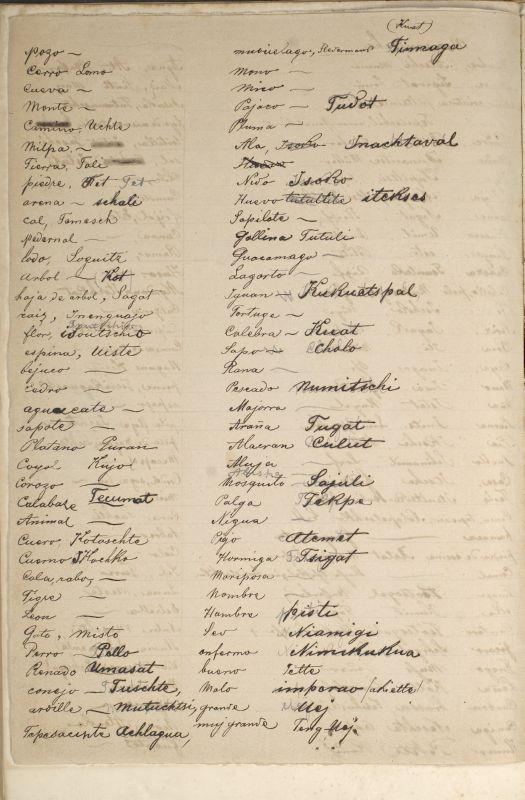 pozo —
Cerro Lomo
Cueva —
Monte —
Camino, Uchte
Milpa, —
Tierra, Tali
piedre, Tet Tet
arena — schali
Cal, Tenesch
pedernal —
lodo, Soguite
Arbol — Kot
hoja de arbol, Sagat
raiz, Inenguajo
flor, isoutschio
espina, Uiste
bejuco —
cedro —
aguacate —
sapote —
Platano Puran
Coyol Kujo
Corozo —
Calabaze Tecumat
Animal —
Cuero, Kotoschte
Cuerno Kochko
Cola, rabo, —
Tigre —
Leon —
Gato, misto
Perro — Pello
Renado Umasat
conejo — Tuschte,
ardille — Mutuchtsi,
Tapesacinte Achlagua,
(Kuat)
murcielago, Fledermaus Tinnaga
Mono —
Mico —
Pajaro — Tudot
Pluma —
Ala, Isoko Inachtaval
Nido Isoko
Huevo tutultite itekses
Sopilote —
gallina Tutuli
Guacamago —
Lagarto —
Iguan — Kukuetspal
Tortuga —
Calebra — Kuat
Sapo — Cholo
Rana —
Pescado Numitschi
Majorra —
Araña Tugat
Alacran Culut
Aluja
Mosquito — Sajuli
Pulga Tekpe
Nigua —
Pijo atemet
Hormiga Tsigat
Mariposa —
Hombre —
Hambre pisti
Sev Niamigi
enfermo Nimikukua
bueno Iette
Malo imperao (ahiette)
grande Uej
muj grande Teng Uej